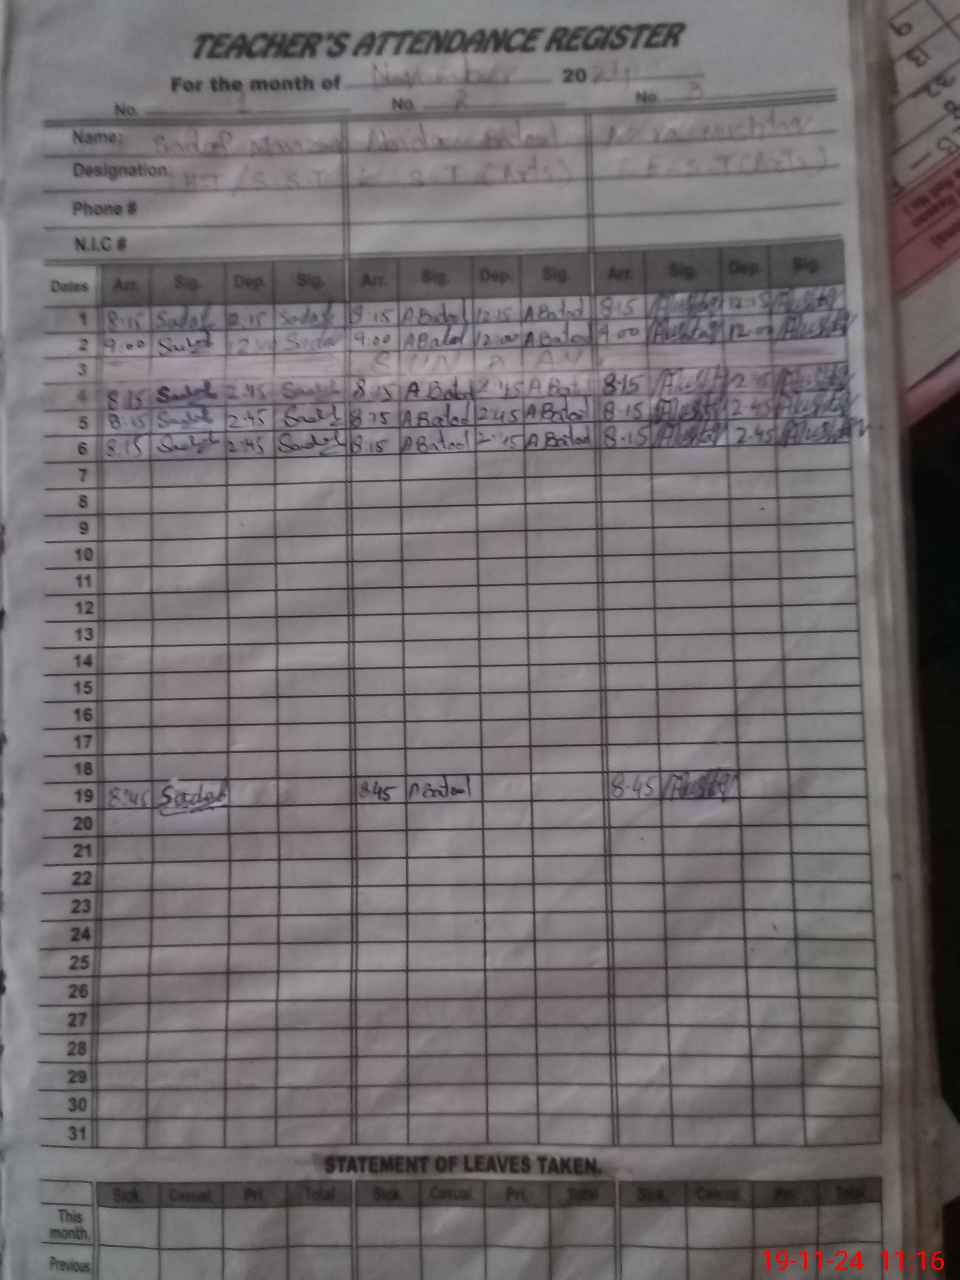 TEACHER'S ATTENDANCE REGISTER
For the month of November 2024
No. 1 No. 2 No. 3
Name:
Designation: S.S.T E.S.T (Arts) E.S.T (Arts)
Phone #
N.I.C #
Dates Arr. Sig. Dep. Sig. Arr. Sig. Dep. Sig. Arr. Sig. Dep. Sig.
1 8.15 Sadaf 12.15 Sadaf 8.15 A Batool 12.15 A Batool 8.15 12.15
2 9.00 12.00 9.00 A Batool 12.00 A Batool 9.00 12.00
3 S U N D A Y
4 8.15 2.45 8.15 A Batool 2.45 A Batool 8.15 2.45
5 8.15 2.45 8.15 A Batool 2.45 A Batool 8.15 2.45
6 8.15 2.45 8.15 A Batool 2.45 A Batool 8.15 2.45
7
8
9
10
11
12
13
14
15
16
17
18
19 8.45 Sadaf 8.45 A Batool 8.45
20
21
22
23
24
25
26
27
28
29
30
31
STATEMENT OF LEAVES TAKEN.
Sick. Casual. Pri. Total Sick. Casual. Pri. Total Sick. Casual. Pri. Total
This
month.
Previous
19-11-24 11:16